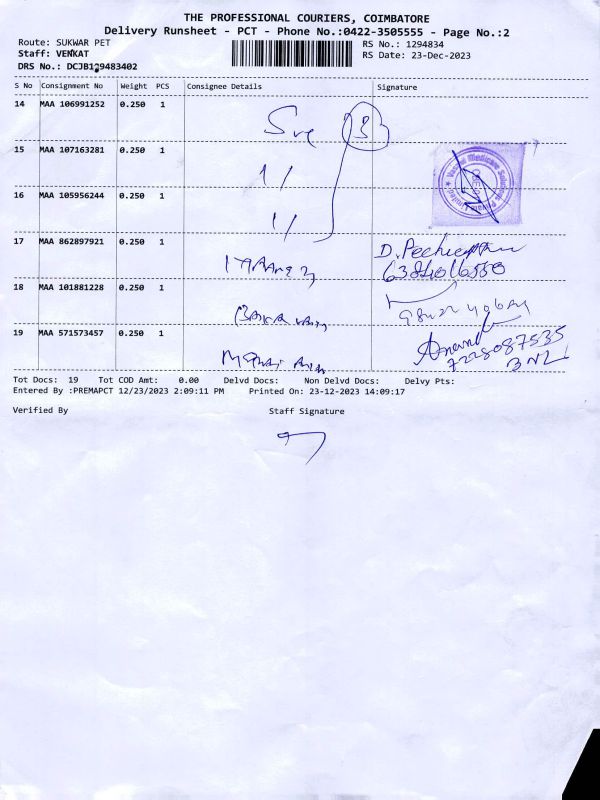 THE PROFESSIONAL COURIERS, COIMBATORE
Delivery Runsheet - PCT - Phone No.:0422-3505555 - Page No.:2
Route: SUKWAR PET
RS No.: 1294834
Staff: VENKAT
RS Date: 23-Dec-2023
DRS No.: DCJB129483402
S No Consignment No Weight PCS Consignee Details Signature
14 MAA 106991252 0.250 1
15 MAA 107163281 0.250 1
16 MAA 105956244 0.250 1
17 MAA 862897921 0.250 1
18 MAA 101881228 0.250 1
19 MAA 571573457 0.250 1
Anand
7225087535
Tot Docs: 19 Tot COD Amt: 0.00 Delvd Docs: Non Delvd Docs: Delvy Pts:
Entered By :PREMAPCT 12/23/2023 2:09:11 PM Printed On: 23-12-2023 14:09:17
Verified By Staff Signature